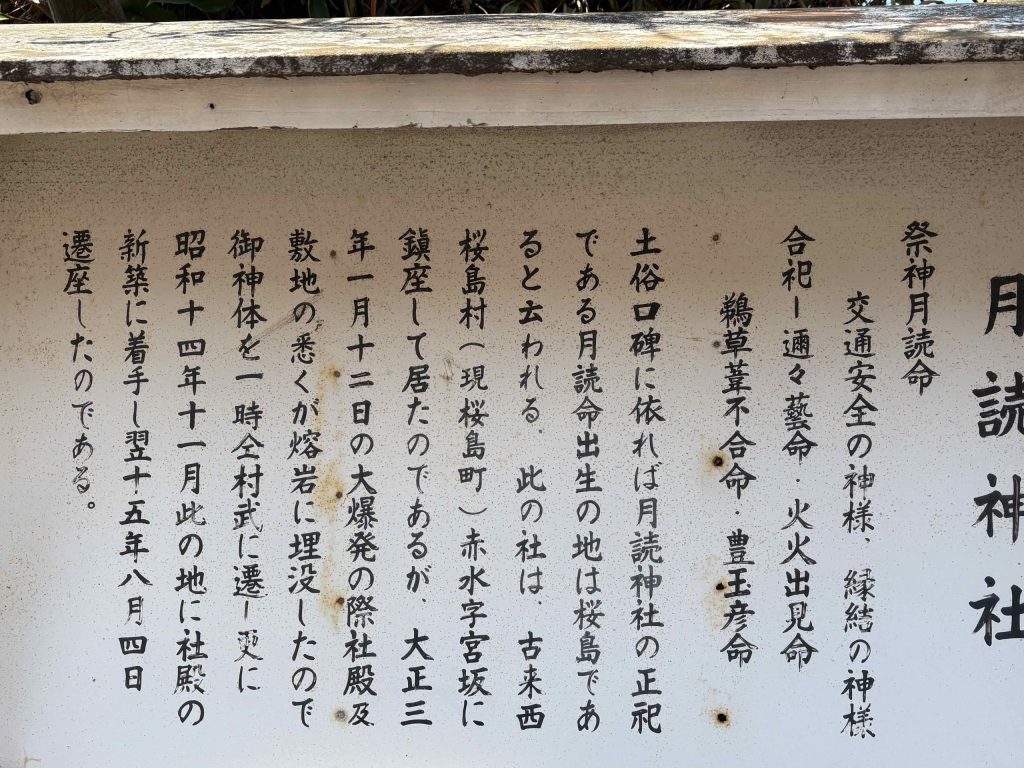 月読神社
祭神月読命
交通安全の神様、縁結の神様
合祀ー邇々藝命・火火出見命
鵜草葺不合命・豊玉彦命
土俗口碑に依れば月読神社の正祀
である月読命出生の地は桜島であ
ると云われる、此の社は、古来西
桜島村(現桜島町)赤水字宮坂に
鎮座して居たのであるが、大正三
年一月十二日の大爆発の際社殿及
敷地の悉くが熔岩に埋没したので
御神体を一時仝村武に遷し更に
昭和十四年十一月此の地に社殿の
新築に着手し翌十五年八月四日
遷座したのである。